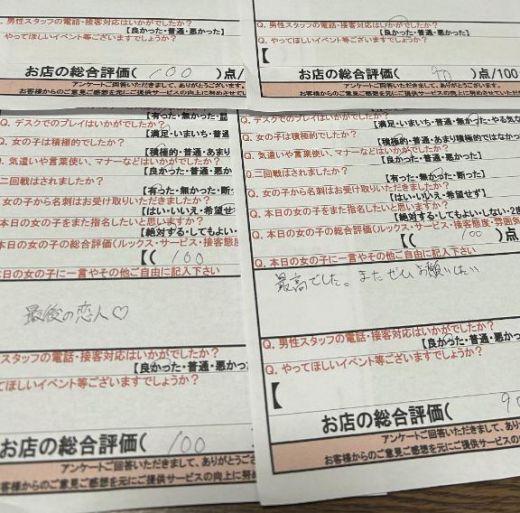 Q. 男性スタッフの電話・接客対応はいかがでしたか?
【良かった・普通・悪かった】
Q. やってほしいイベント等ございますでしょうか?
お店の総合評価( 100 )点/
アンケートご回答いただきまして、ありがとうございます。
お客様からのご意見ご感想を元にご提供サービスの向上に努めさせてい
Q. 男性スタッフの電話・接客対応はいかがでしたか?
【良かった・普通・悪かった】
Q. やってほしいイベント等ございますでしょうか?
【
お店の総合評価( 90 )点/100
アンケートご回答いただきまして、ありがとうございます。
お客様からのご意見ご感想を元にご提供サービスの向上に努めさせて
Q. デスクでのプレイはいかがでしたか?
【満足・いまいち・普通
Q. 女の子は積極的でしたか?
【積極的・普通・あまり
Q. 気遣いや言葉使い、マナーなどはいかがでしたか?
【良かった・普通・悪か
二回戦はされましたか?
【有った・無かった・断っ
女の子から名刺はお受け取りいただきましたか?
【はい・いいえ・希望せ
本日の女の子をまた指名したいと思いますか?
【絶対する・してもよい
本日の女の子の総合評価(ルックス・サービス・接客態度
【( 100
本日の女の子に一言やその他ご自由に記入下さい
最後の恋人♡
スタッフの電話・接客対応はいかがでしたか?
【良かった・普通・悪かっ
てほしいイベント等ございますでしょうか?
お店の総合評価( 100
アンケートご回答いただきまして、ありがとうご
客様からのご意見ご感想を元にご提供サービスの向上に努め
Q. デスクでのプレイはいかがでしたか?
【満足・いまいち・普通・無かった・やる気な
Q. 女の子は積極的でしたか?
【積極的・普通・あまり積極的ではなかっ
Q. 気遣いや言葉使い、マナーなどはいかがでしたか?
【良かった・普通・悪かった】
Q. 二回戦はされましたか?
【有った・無かった・断った】
Q. 女の子から名刺はお受け取りいただきましたか?
【はい・いいえ・希望せず】
Q. 本日の女の子をまた指名したいと思いますか?
【絶対する・してもよい・しない・2度
Q. 本日の女の子の総合評価(ルックス・サービス・接客態度・雰囲気
【( 100 )点
Q. 本日の女の子に一言やその他ご自由に記入下さい
最高でした。またぜひお願いしたい
Q. 男性スタッフの電話・接客対応はいかがでしたか?
【良かった・普通・悪かっ
Q. やってほしいイベント等ございますでしょうか?
【
お店の総合評価( 90
アンケートご回答いただきまして、あり
お客様からのご意見ご感想を元にご提供サービスの